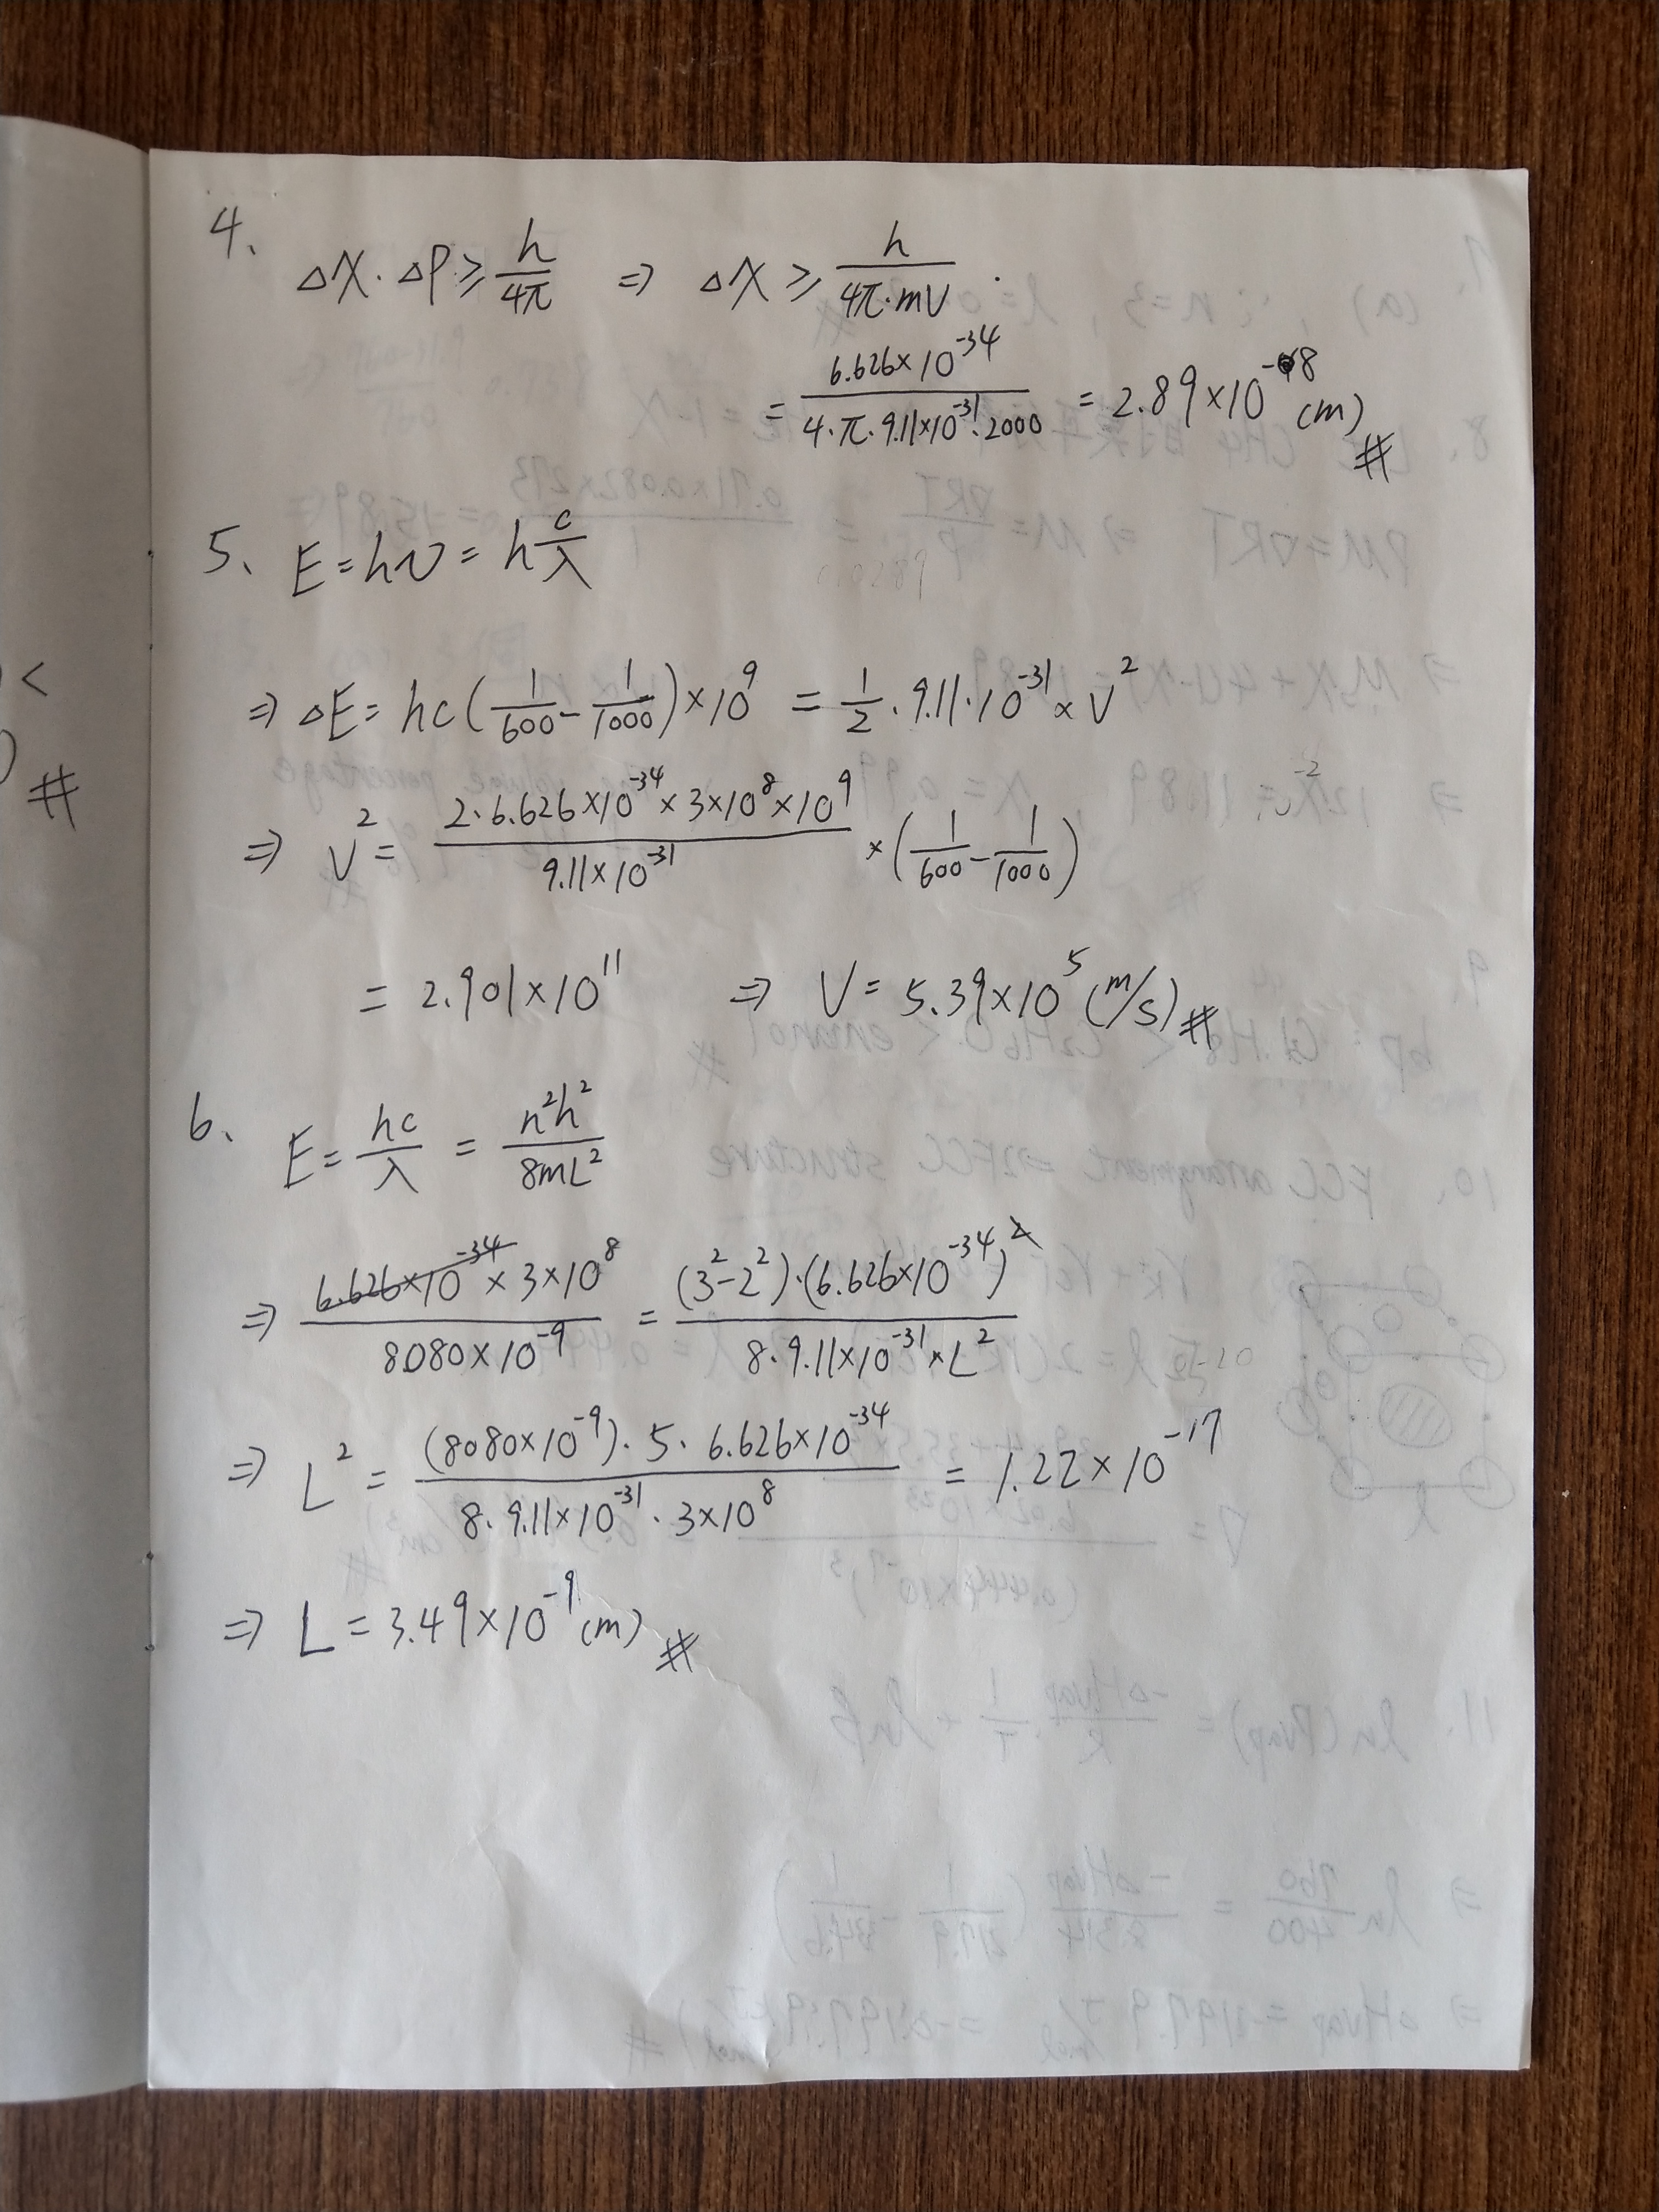 4.
ΔX · ΔP ≥ h/4π ⇒ ΔX ≥ h/(4π·mv)
= 6.626×10^-34 / (4·π·9.11×10^-31·2000) = 2.89×10^-8 (m) #
5. E = hν = h c/λ
⇒ ΔE = hc(1/600 - 1/1000)×10^9 = 1/2 · 9.11·10^-31 × V^2
⇒ V^2 = (2·6.626×10^-34 × 3×10^8 × 10^9)/(9.11×10^-31) × (1/600 - 1/1000)
= 2.901×10^11 ⇒ V = 5.39×10^5 (m/s) #
6. E = hc/λ = n^2h^2/8mL^2
⇒ (6.626×10^-34 × 3×10^8)/(8080×10^-9) = ((3^2-2^2)·(6.626×10^-34)^2)/(8·9.11×10^-31×L^2)
⇒ L^2 = ((8080×10^-9)·5·6.626×10^-34)/(8·9.11×10^-31·3×10^8) = 1.22×10^-17
⇒ L = 3.49×10^-9 (m) #
<
#